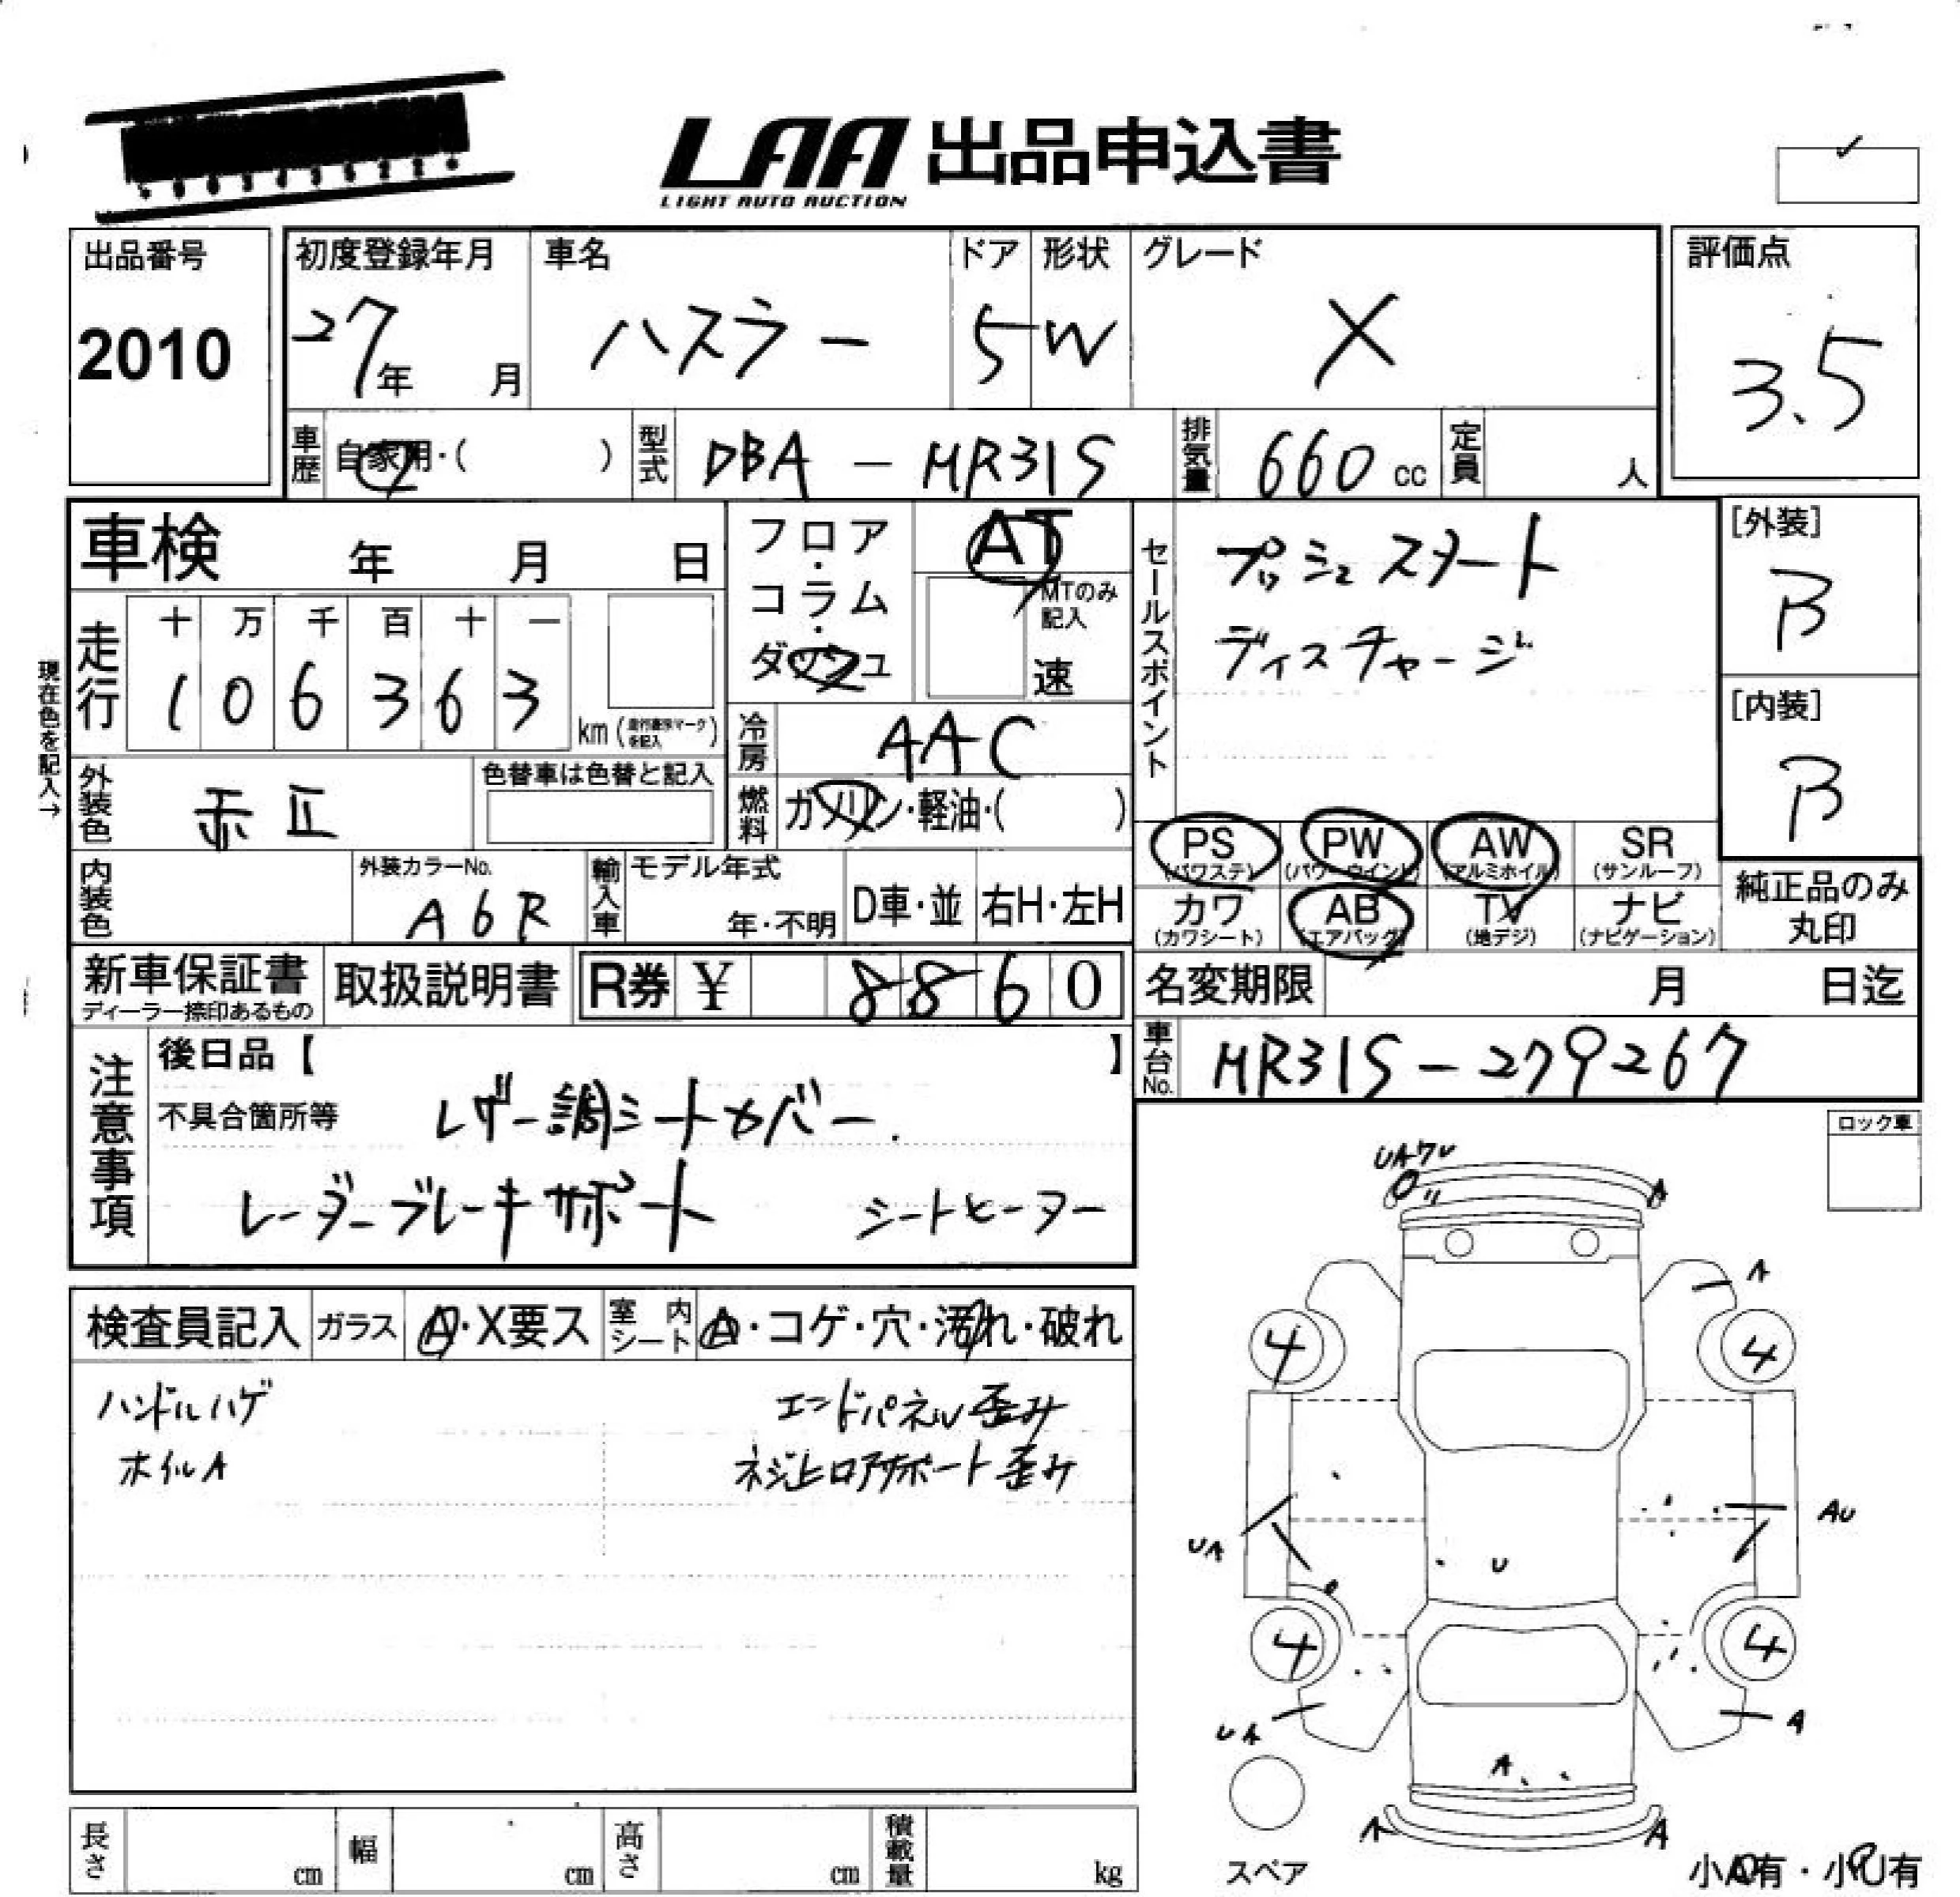 LAA 出品申込書
LIGHT AUTO AUCTION
出品番号
2010
初度登録年月
27年 月
車名
ハスラー
ドア
5
形状
W
グレード
X
評価点
3.5
車歴 自家用・( )
型式 DBA - MR31S
排気量 660 cc
定員 人
車検 年 月 日
走行
十 万 千 百 十 一
1 0 6 3 6 3
km (走行意味マーク を記入)
現在色を記入→
フロア・コラム・ダッシュ
AT
MTのみ記入
速
冷房 AAC
燃料 ガソリン・軽油・( )
外装色 赤正
色替車は色替と記入
内装色
外装カラーNo.
A6R
輸入車
モデル年式
年・不明
D車・並 右H・左H
セールスポイント
プッシュスタート
ディスチャージ
[外装]
B
[内装]
B
PS (パワステ)
PW (パワーウインド)
AW (アルミホイル)
SR (サンルーフ)
カワ (カワシート)
AB (エアバッグ)
TV (地デジ)
ナビ (ナビゲーション)
純正品のみ丸印
新車保証書
ディーラー捺印あるもの
取扱説明書
R券 ¥ 8860
名変期限 月 日迄
車台No. MR31S-279267
注意事項
後日品【 】
不具合箇所等 レザー調シートカバー.
レーダーブレーキサポート シートヒーター
ロック車
検査員記入 ガラス A・X要ス 室内シート A・コゲ・穴・汚れ・破れ
ハンドルハゲ
ホイルA
エンドパネル歪み
ネジ止ロアサポート歪み
UAワレ
A
A
4
4
UA
U
AU
4
4
UA
A
A
A
A
スペア
小A有・小U有
長さ cm
幅 cm
高さ cm
積載量 kg